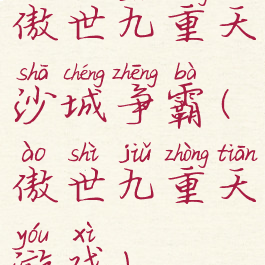 傲世九重天
shā chéng zhēng bà
沙城争霸(
ào shì jiǔ zhòng tiān
傲世九重天
yóu xì
游戏)